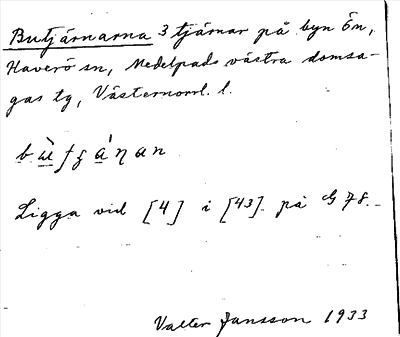 Butjärnarna 3 tjärnar på byn Ön,
Haverö sn, Medelpads västra domsa-
gas tg, Västernorrl. l.
Ligga vid [4] i [43] på G 78.
Valter Jansson 1933